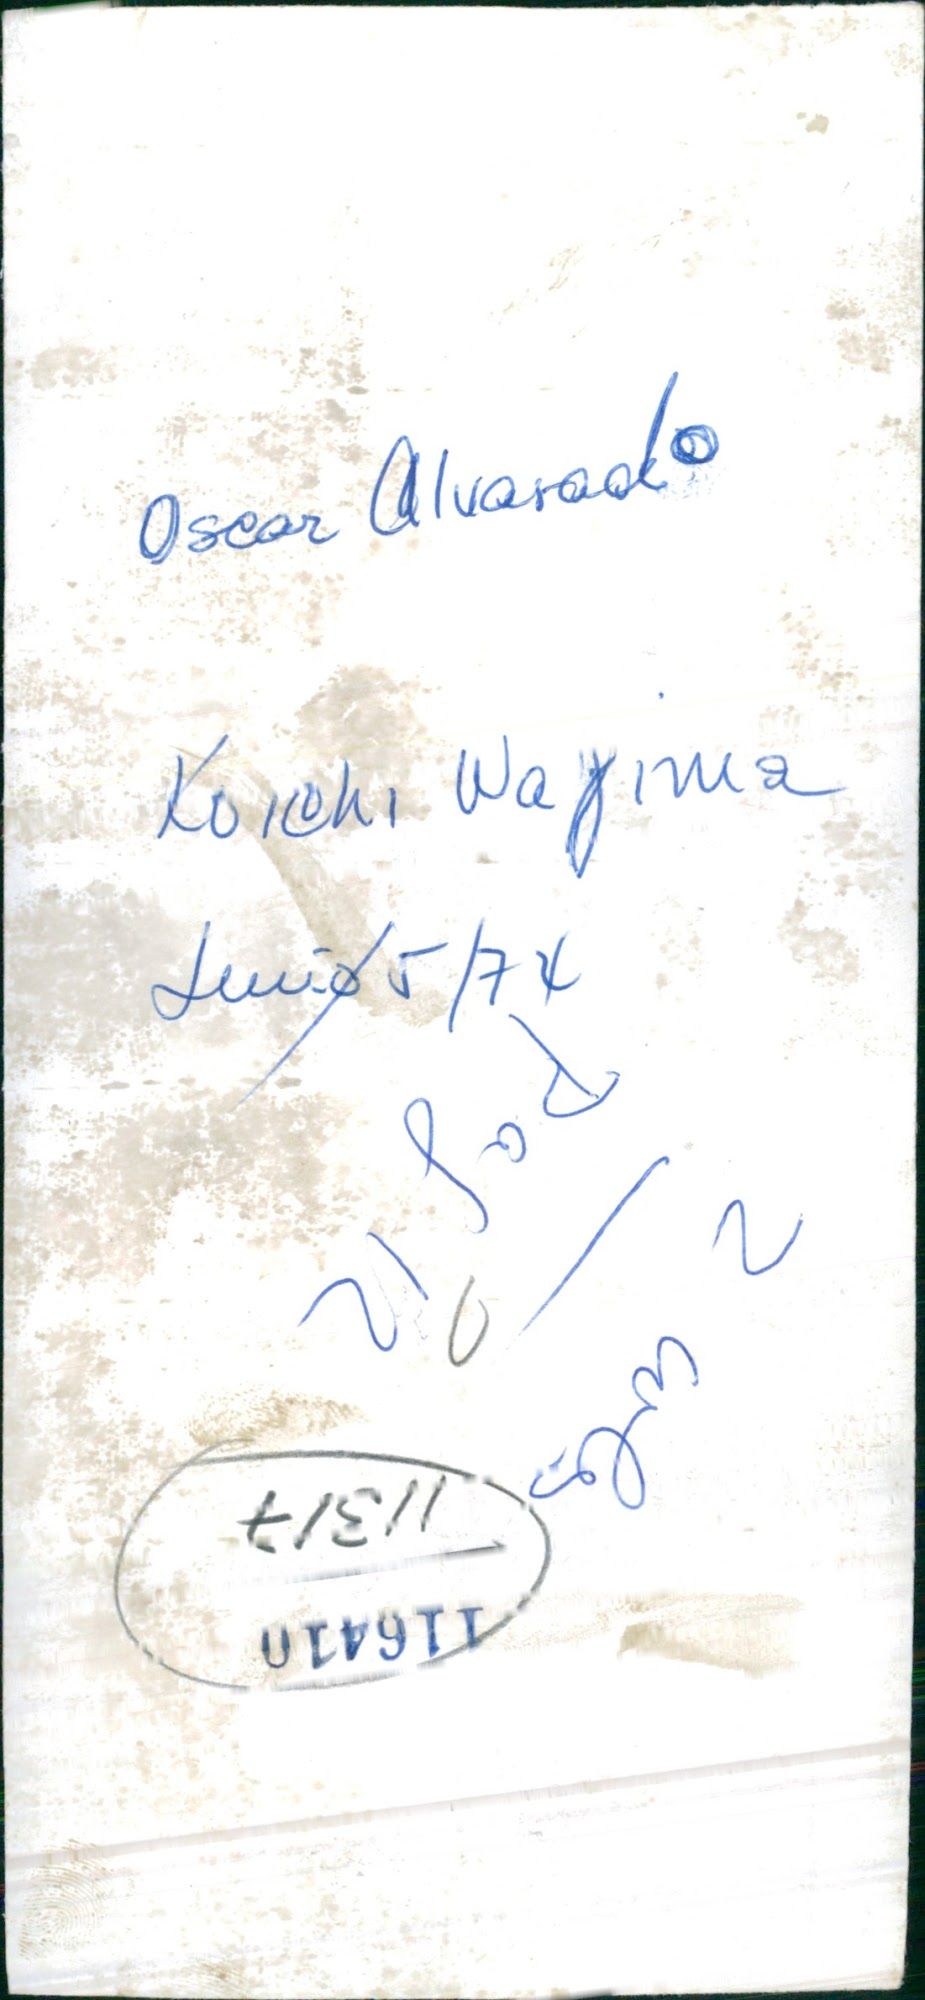 Oscar Alvarado
Koichi Wajima
Junio 5/74
2
11317
116410